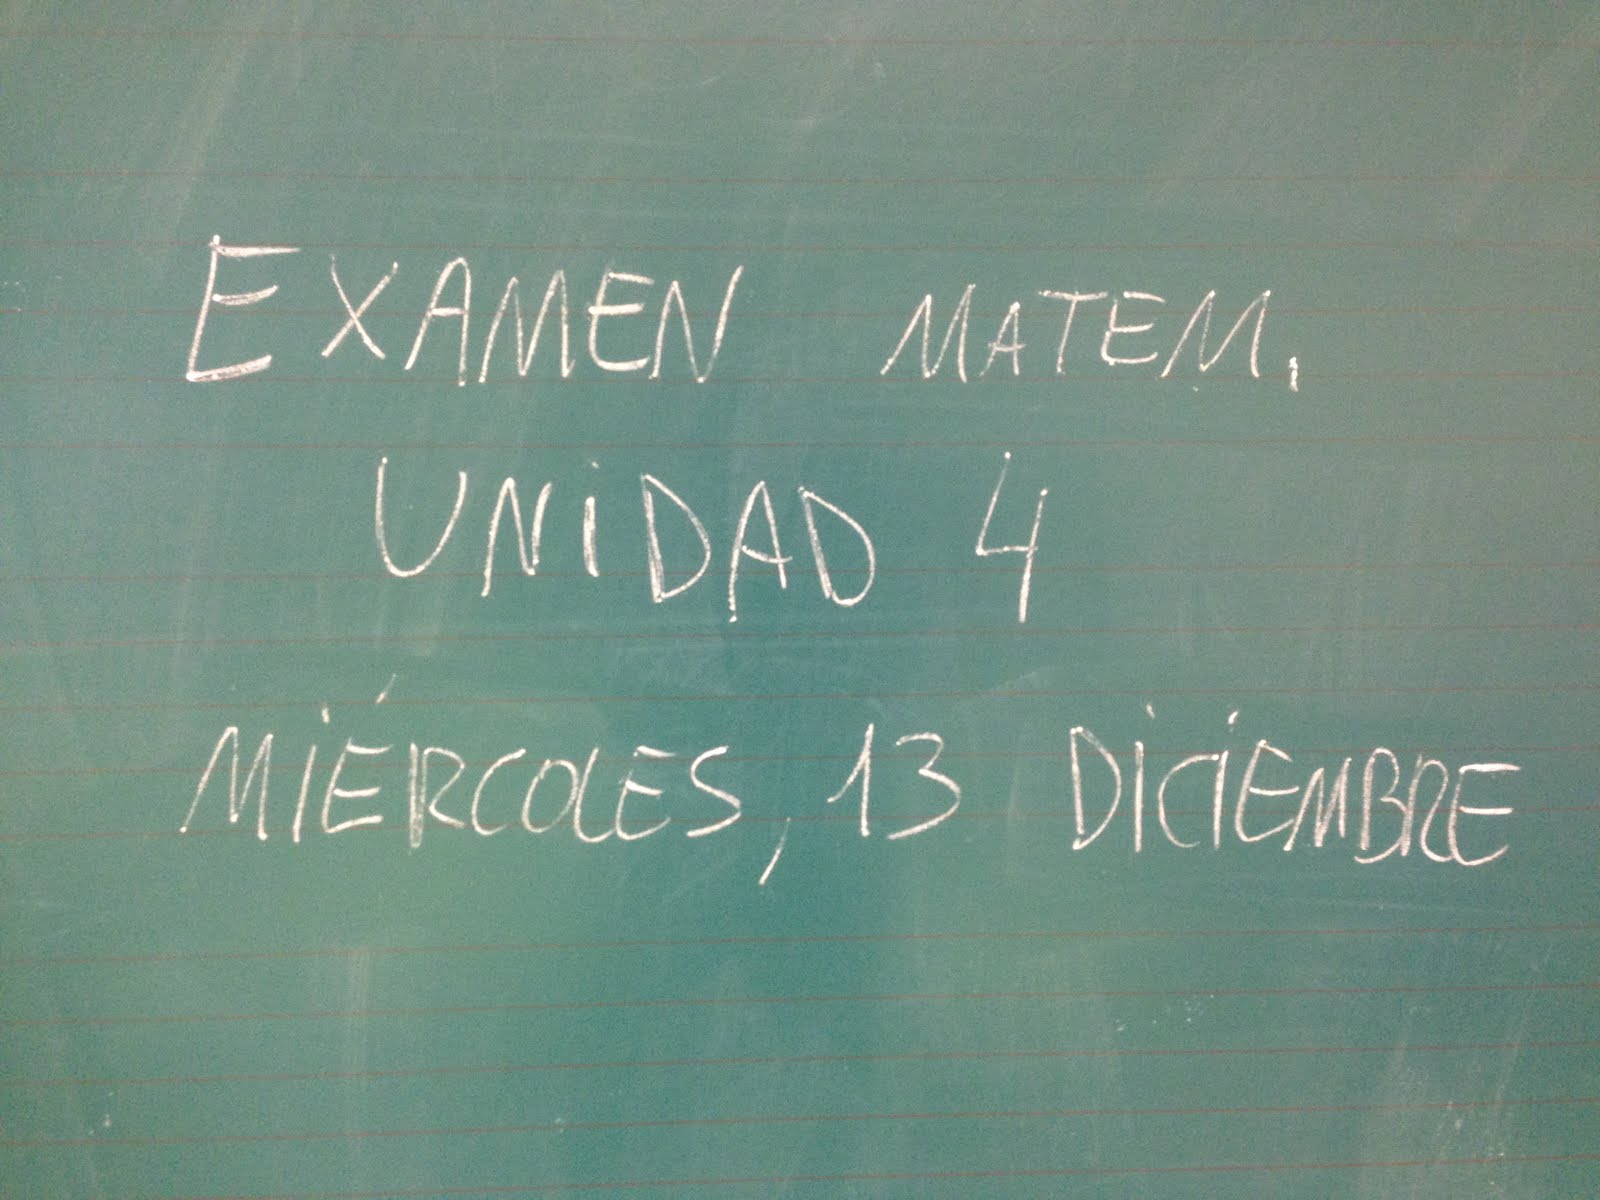 EXAMEN MATEM.
UNiDAD 4
MiÉRCOLES, 13 DiCiEMBRE